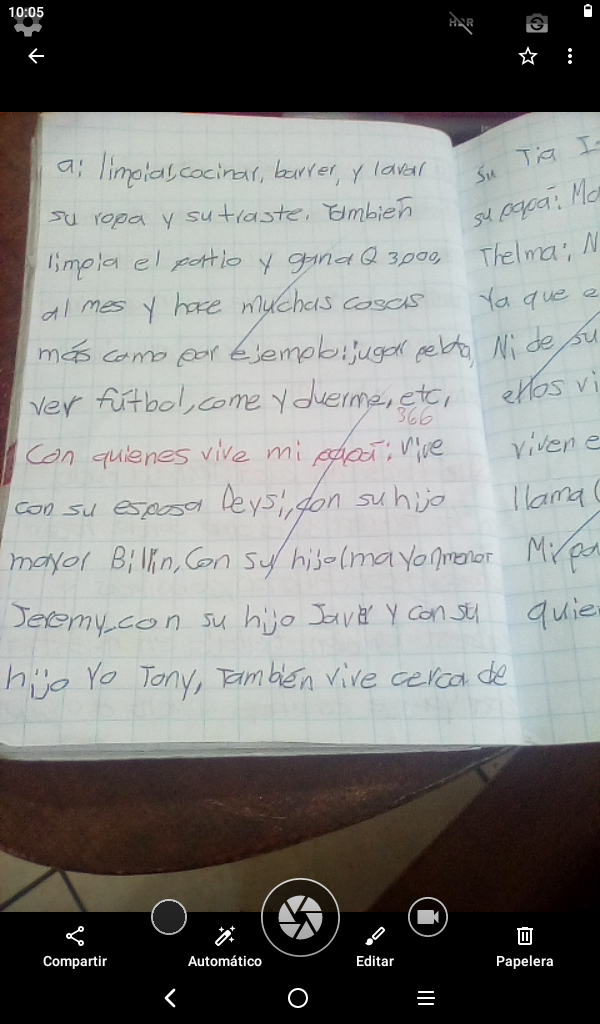 10:05
HDR
a: limpiar, cocinar, barrer, y lavar
su ropa y su traste. También
limpia el patio y gana Q 3,000,
al mes y hace muchas cosas
más como por ejemplo: jugar pelota,
ver fútbol, come y duerme, etc,
366
Con quienes vive mi papá: vive
con su esposa Deysi, con su hijo
mayor Billin, Con su hijo (mayor) menor
Jeremy con su hijo Javi y con su
hijo Yo Tony, También vive cerca de
su Tia
su papá:
Thelma;
Ya que
Ni de su
ellos
viven
llama
Mi
Compartir
Automático
Editar
Papelera